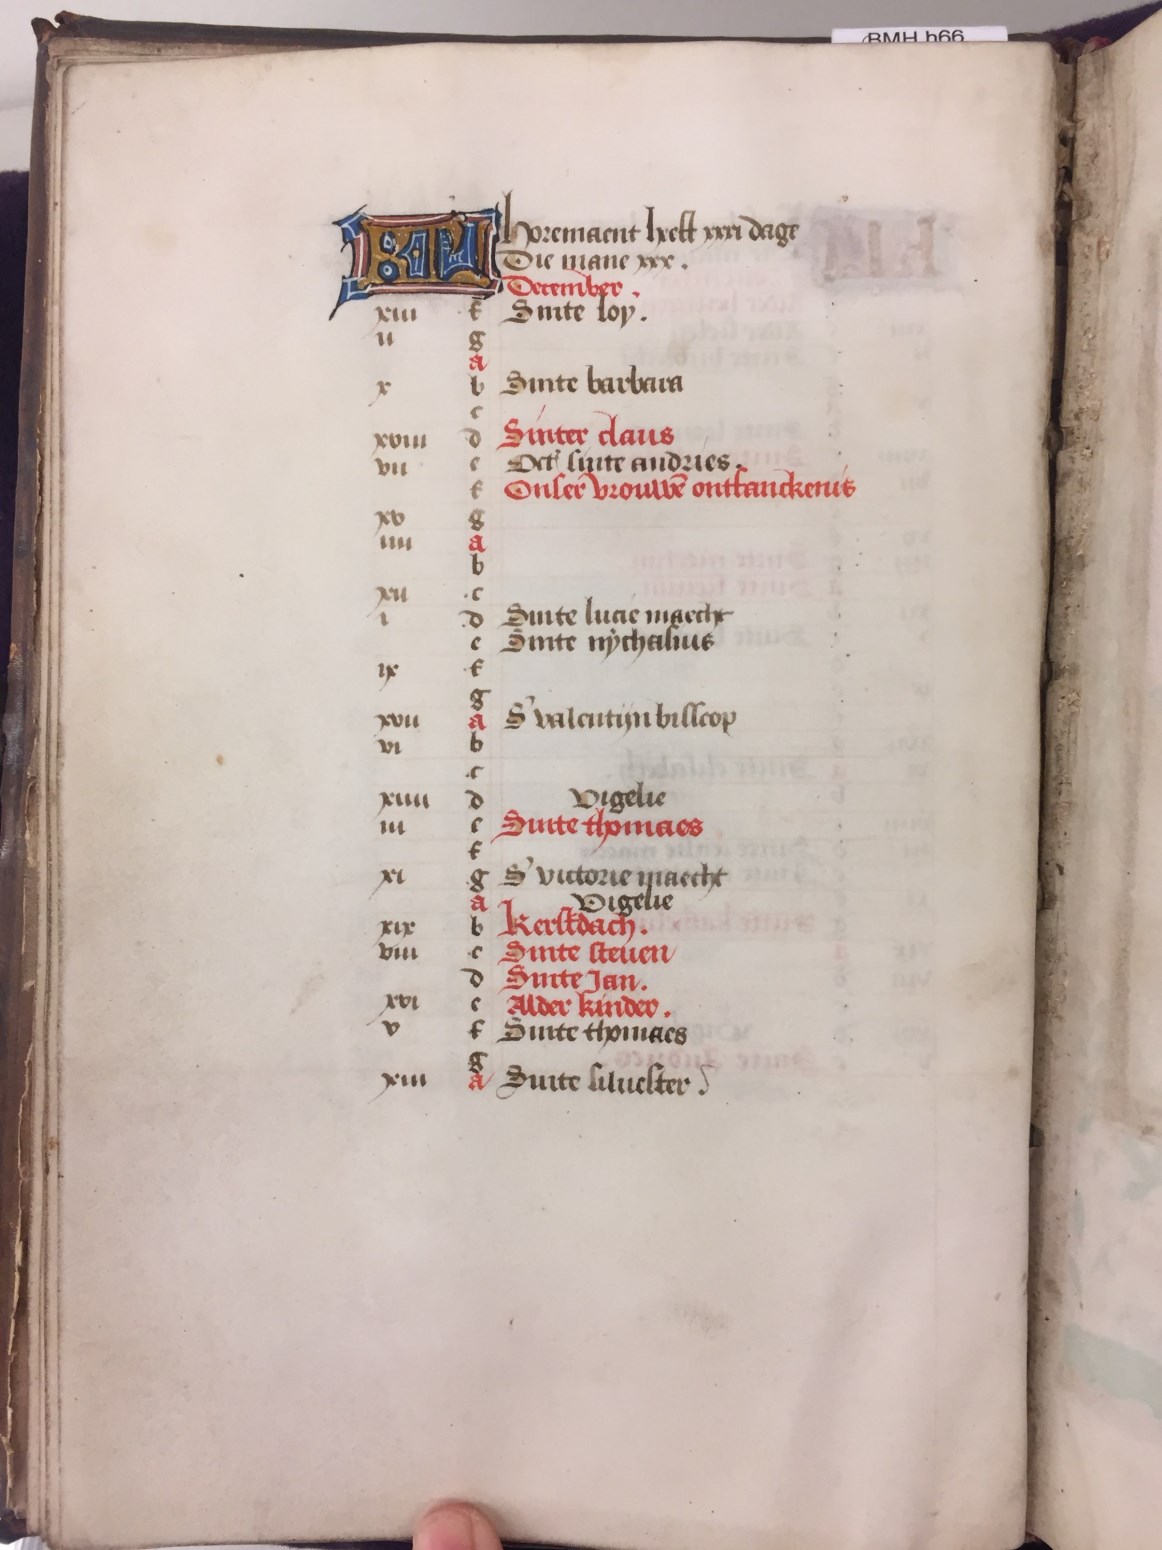 BMH h66
KL horemaent heeft xxxi dage
Die mane xxx.
December.
xiii f Sinte loy.
ii g
a
x b Sinte barbara
c
xviii d Sinter claus
vii e Oct' sinte andries.
f Onser vrouwē ontfanckenis
xv g
iiii a
b
xii c
i d Sinte lucie maecht
e Sinte nychasius
ix f
g
xvii a S' valentijn bisscop
vi b
c
xiiii d Vigelie
iii e Sinte thomaes
f
xi g S' victorie maecht
a Vigelie
xix b Kerstdach.
viii c Sinte steuen
d Sinte Jan.
xvi e Alder kinder.
v f Sinte thomaes
g
xiii a Sinte siluester